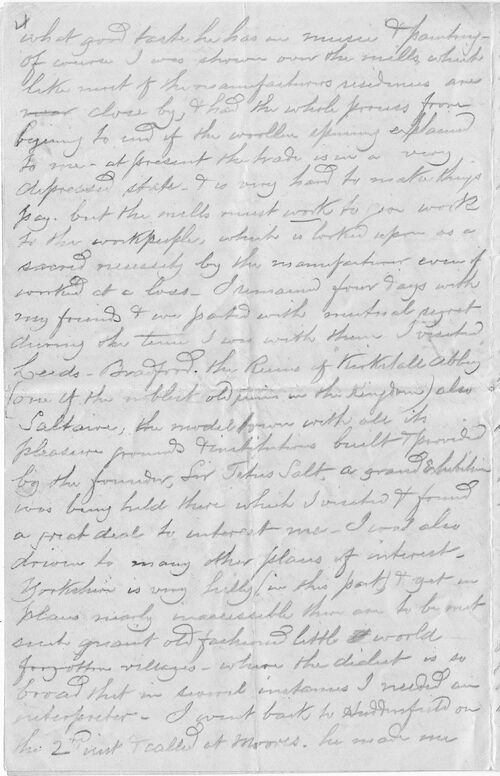 4
what good taste he has in music & painting -
of course I was shown over the mills which
like most of the manufacturers residences are
near close by, & had the whole process from
begining to end of the woollen spinning explained
to me - at present the trade is in a very
depressed state - & is very hard to make things
pay. but the mills must work to give work
to the workpeople, which is looked upon as a
sacred necessity by the manufacturer even if
worked at a loss - I remained four days with
my friends & we parted with mutual regret
during the time I was with them I visited
Leeds - Bradford. the Ruins of Kirkstall Abbey
(one of the noblest old ruins in the Kingdom) also
Saltaire, the model town with all its
pleasure grounds & institutions built & provided
by the founder, Sir Titus Salt. a grand Exhibition
was being held there which I visited & found
a great deal to interest me - I was also
driven to many other places of interest -
Yorkshire is very hilly (in this part) & yet in
places nearly inaccessible there are to be met
such quaint old fashioned little world
forgotten villages - where the dialect is so
broad that in several instances I needed an
interpreter - I went back to Huddersfield on
the 2nd inst & called at Moores. he made me